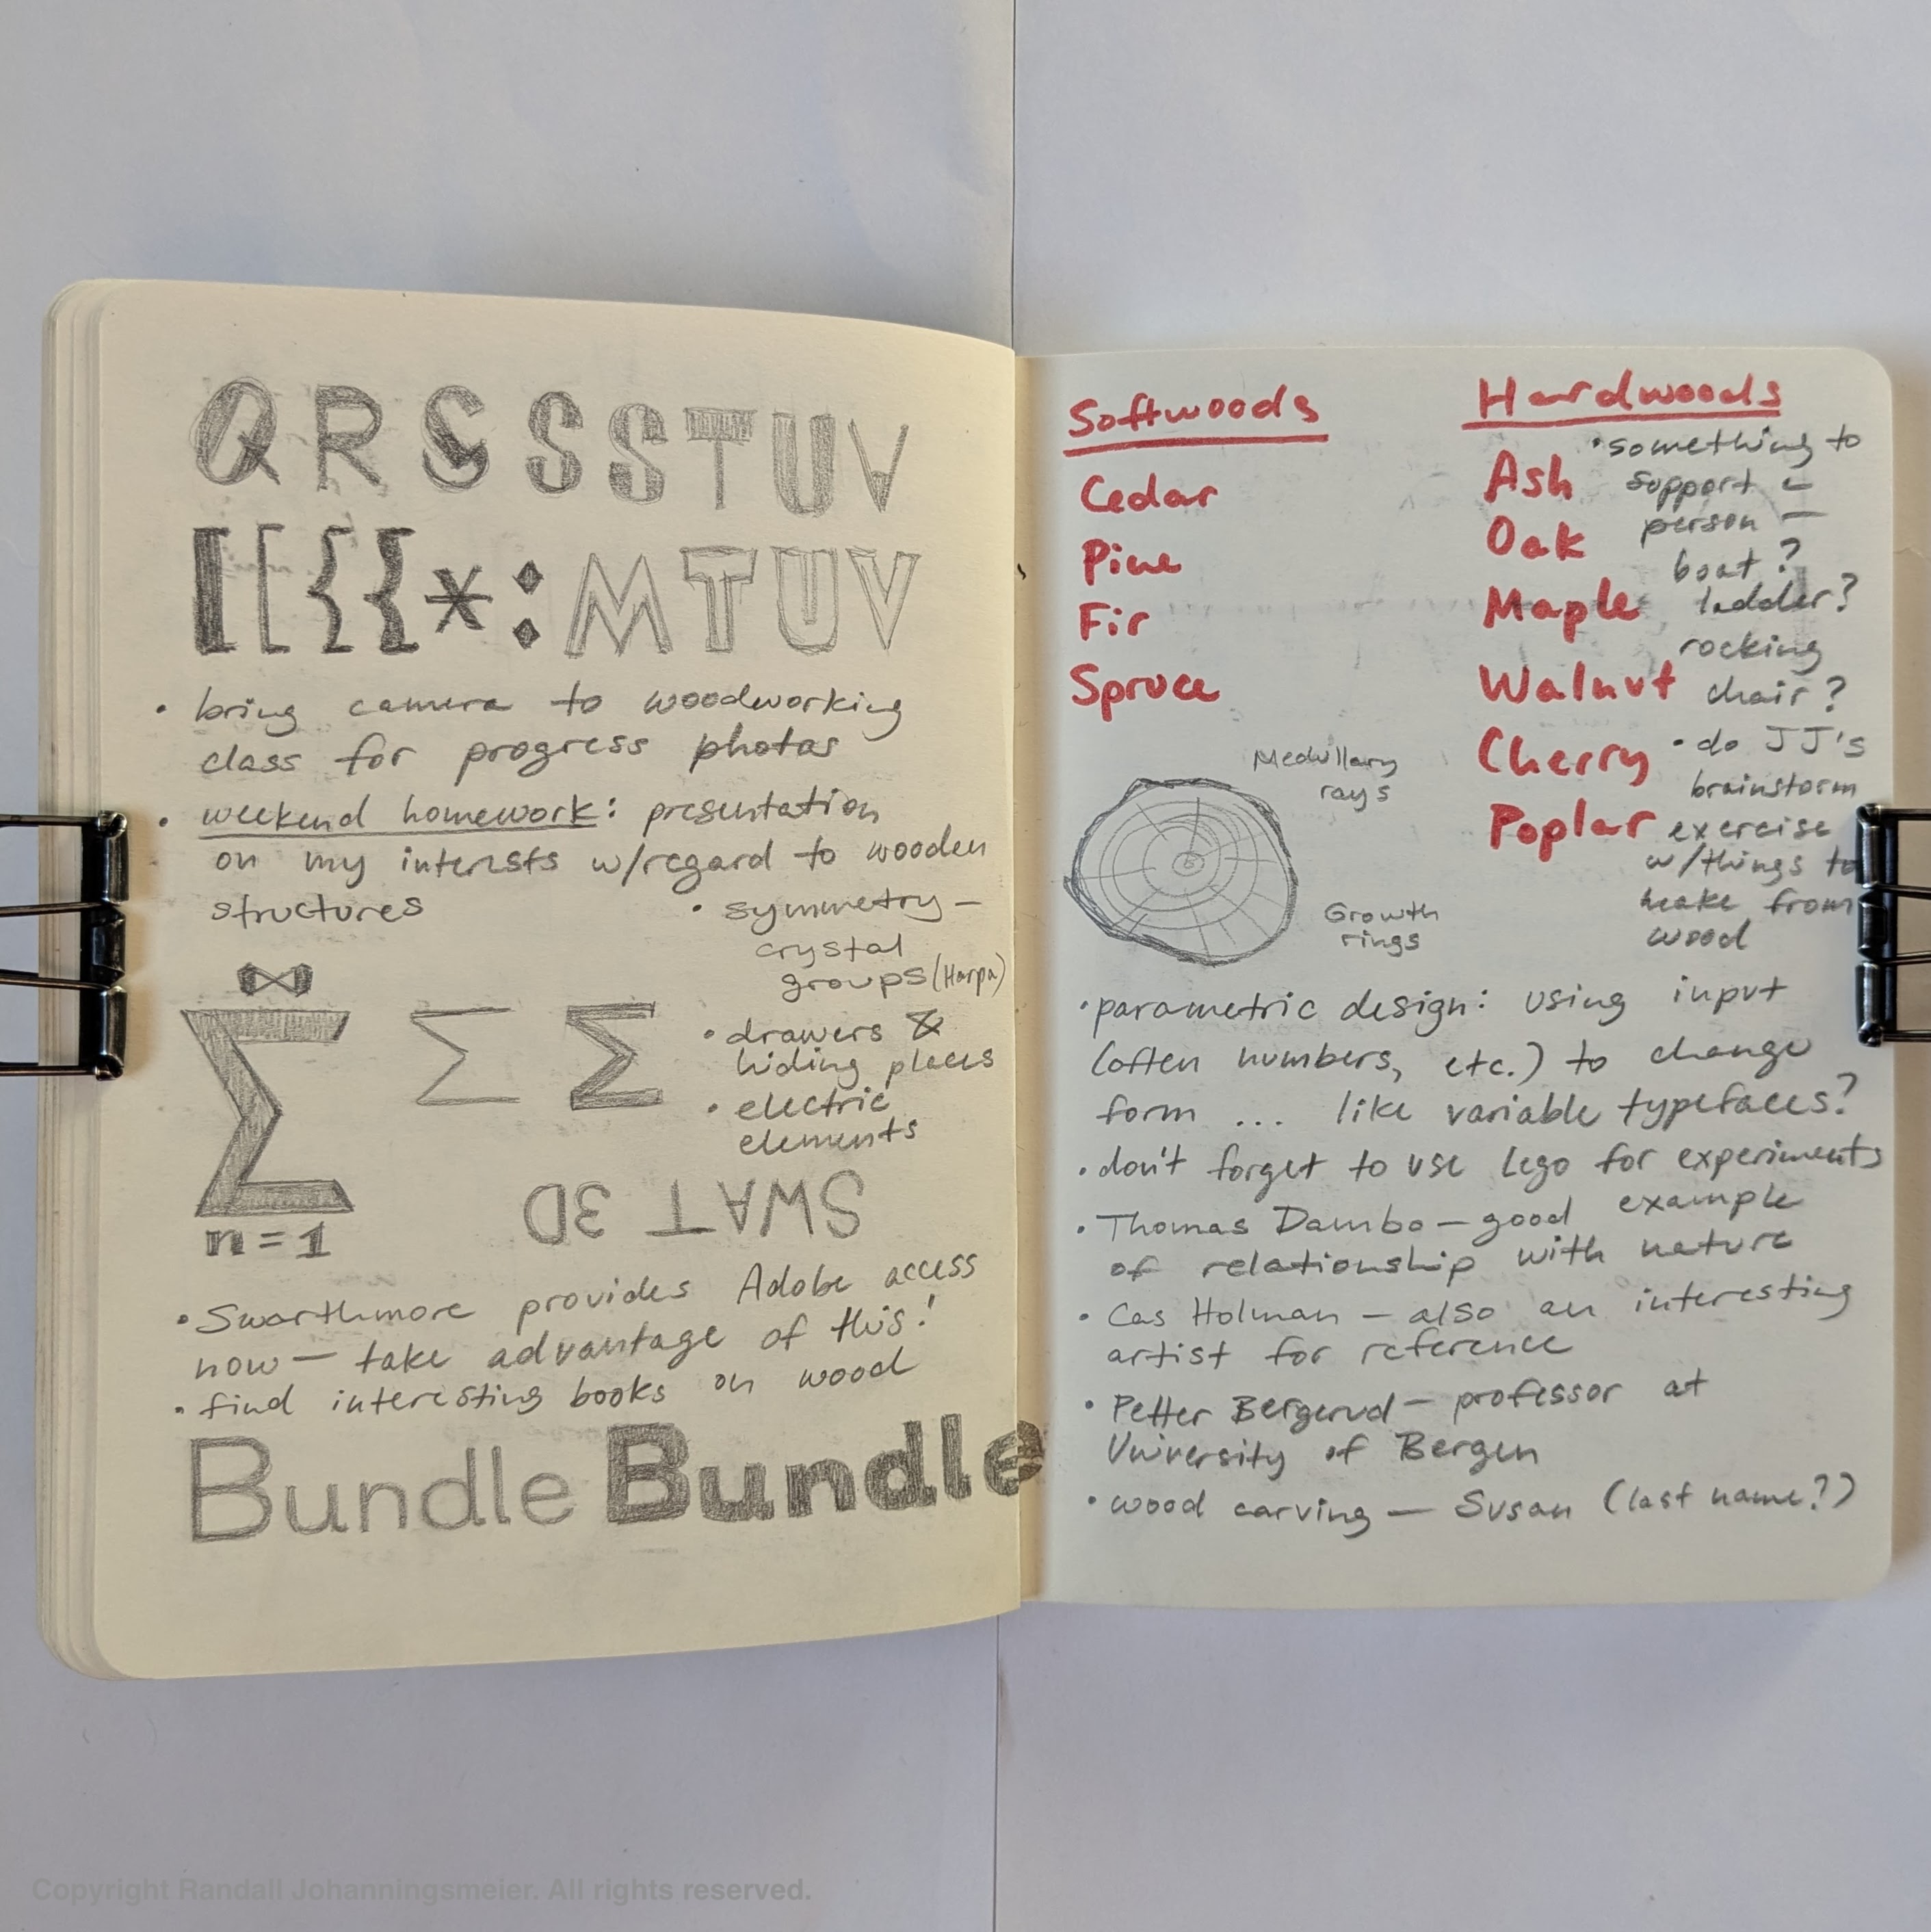 QRSSSTUV
[[{{*:MTUV
• bring camera to woodworking
class for progress photos
• weekend homework: presentation
on my interests w/regard to wooden
structures
• symmetry —
crystal
groups (Harpa)
• drawers &
hiding places
• electric
elements
∞
Σ Σ Σ
n=1
SWAT 3D
• Swarthmore provides Adobe access
now — take advantage of this!
• find interesting books on wood
Bundle Bundle
Softwoods
Cedar
Pine
Fir
Spruce
Medullary
rays
Growth
rings
Hardwoods
Ash
Oak
Maple
Walnut
Cherry
Poplar
• something to
support a
person —
boat?
ladder?
rocking
chair?
• do JJ's
brainstorm
exercise
w/things to
make from
wood
• parametric design: using input
(often numbers, etc.) to change
form ... like variable typefaces?
• don't forget to use Lego for experiments
• Thomas Dambo — good example
of relationship with nature
• Cas Holman — also an interesting
artist for reference
• Petter Bergerud — professor at
University of Bergen
• wood carving — Susan (last name?)
Copyright Randall Johanningsmeier. All rights reserved.